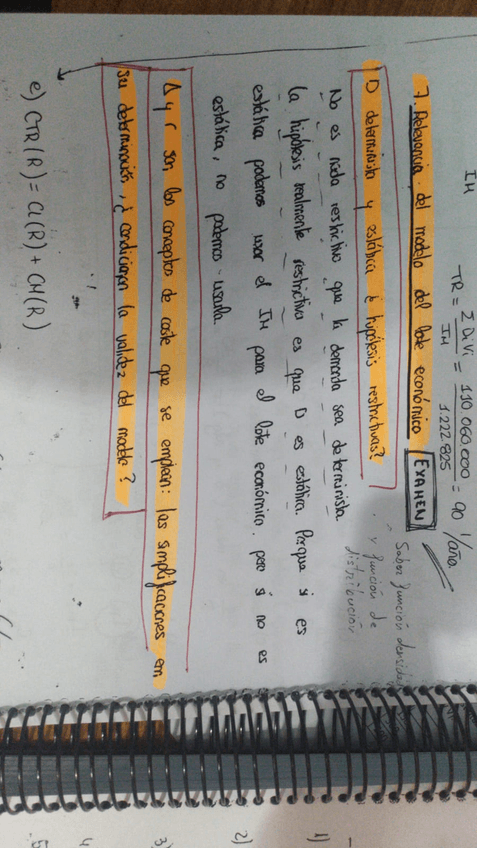 IM
TR = Σ Di Vi / IM = 110.060.000 / 1.222.825 = 90 1/año
7 Relevancia del modelo del lote económico EXAMEN
Saber función densidad
y función de
distribución
D determinista y estática ¿ hipótesis restrictivas?
No es nada restrictivo que la demanda sea determinista
la hipótesis realmente restrictiva es que D es estática. Porque si es
estática podemos usar el IM para el lote económico. pero si no es
estática, no podemos usarla
Δ y r son los conceptos de coste que se emplean: las simplificaciones en
su determinación, ¿ condicionan la validez del modelo?
e) CTR(R) = CI(R) + CH(R)
1)
2)
3)
4
5.